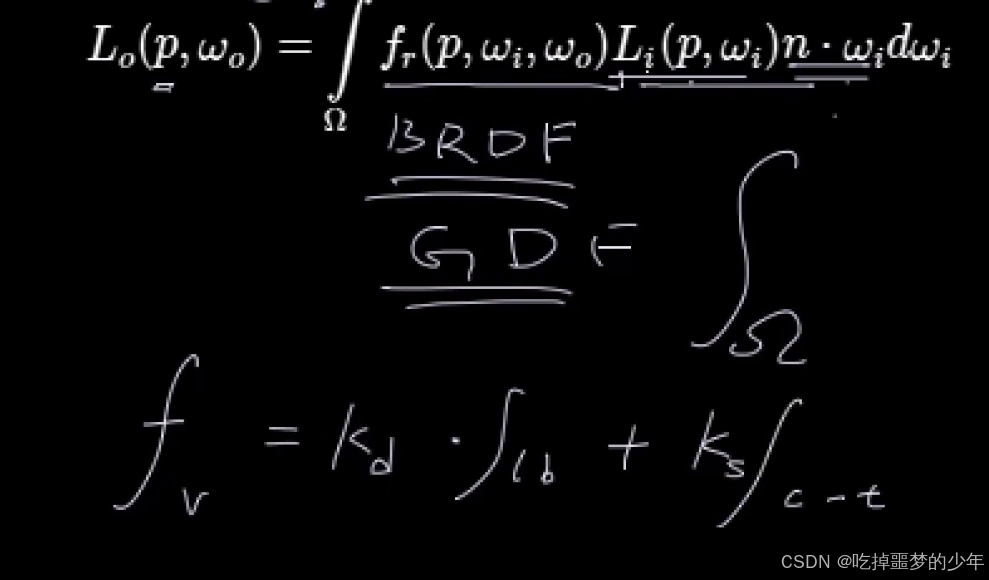 Lₒ(p, ωₒ) = ∫ fᵣ(p, ωᵢ, ωₒ)Lᵢ(p, ωᵢ)n · ωᵢdωᵢ
Ω
BRDF
G D F ∫
Ω
f_r = k_d · f_lb + k_s f_c-t
CSDN @吃掉噩梦的少年